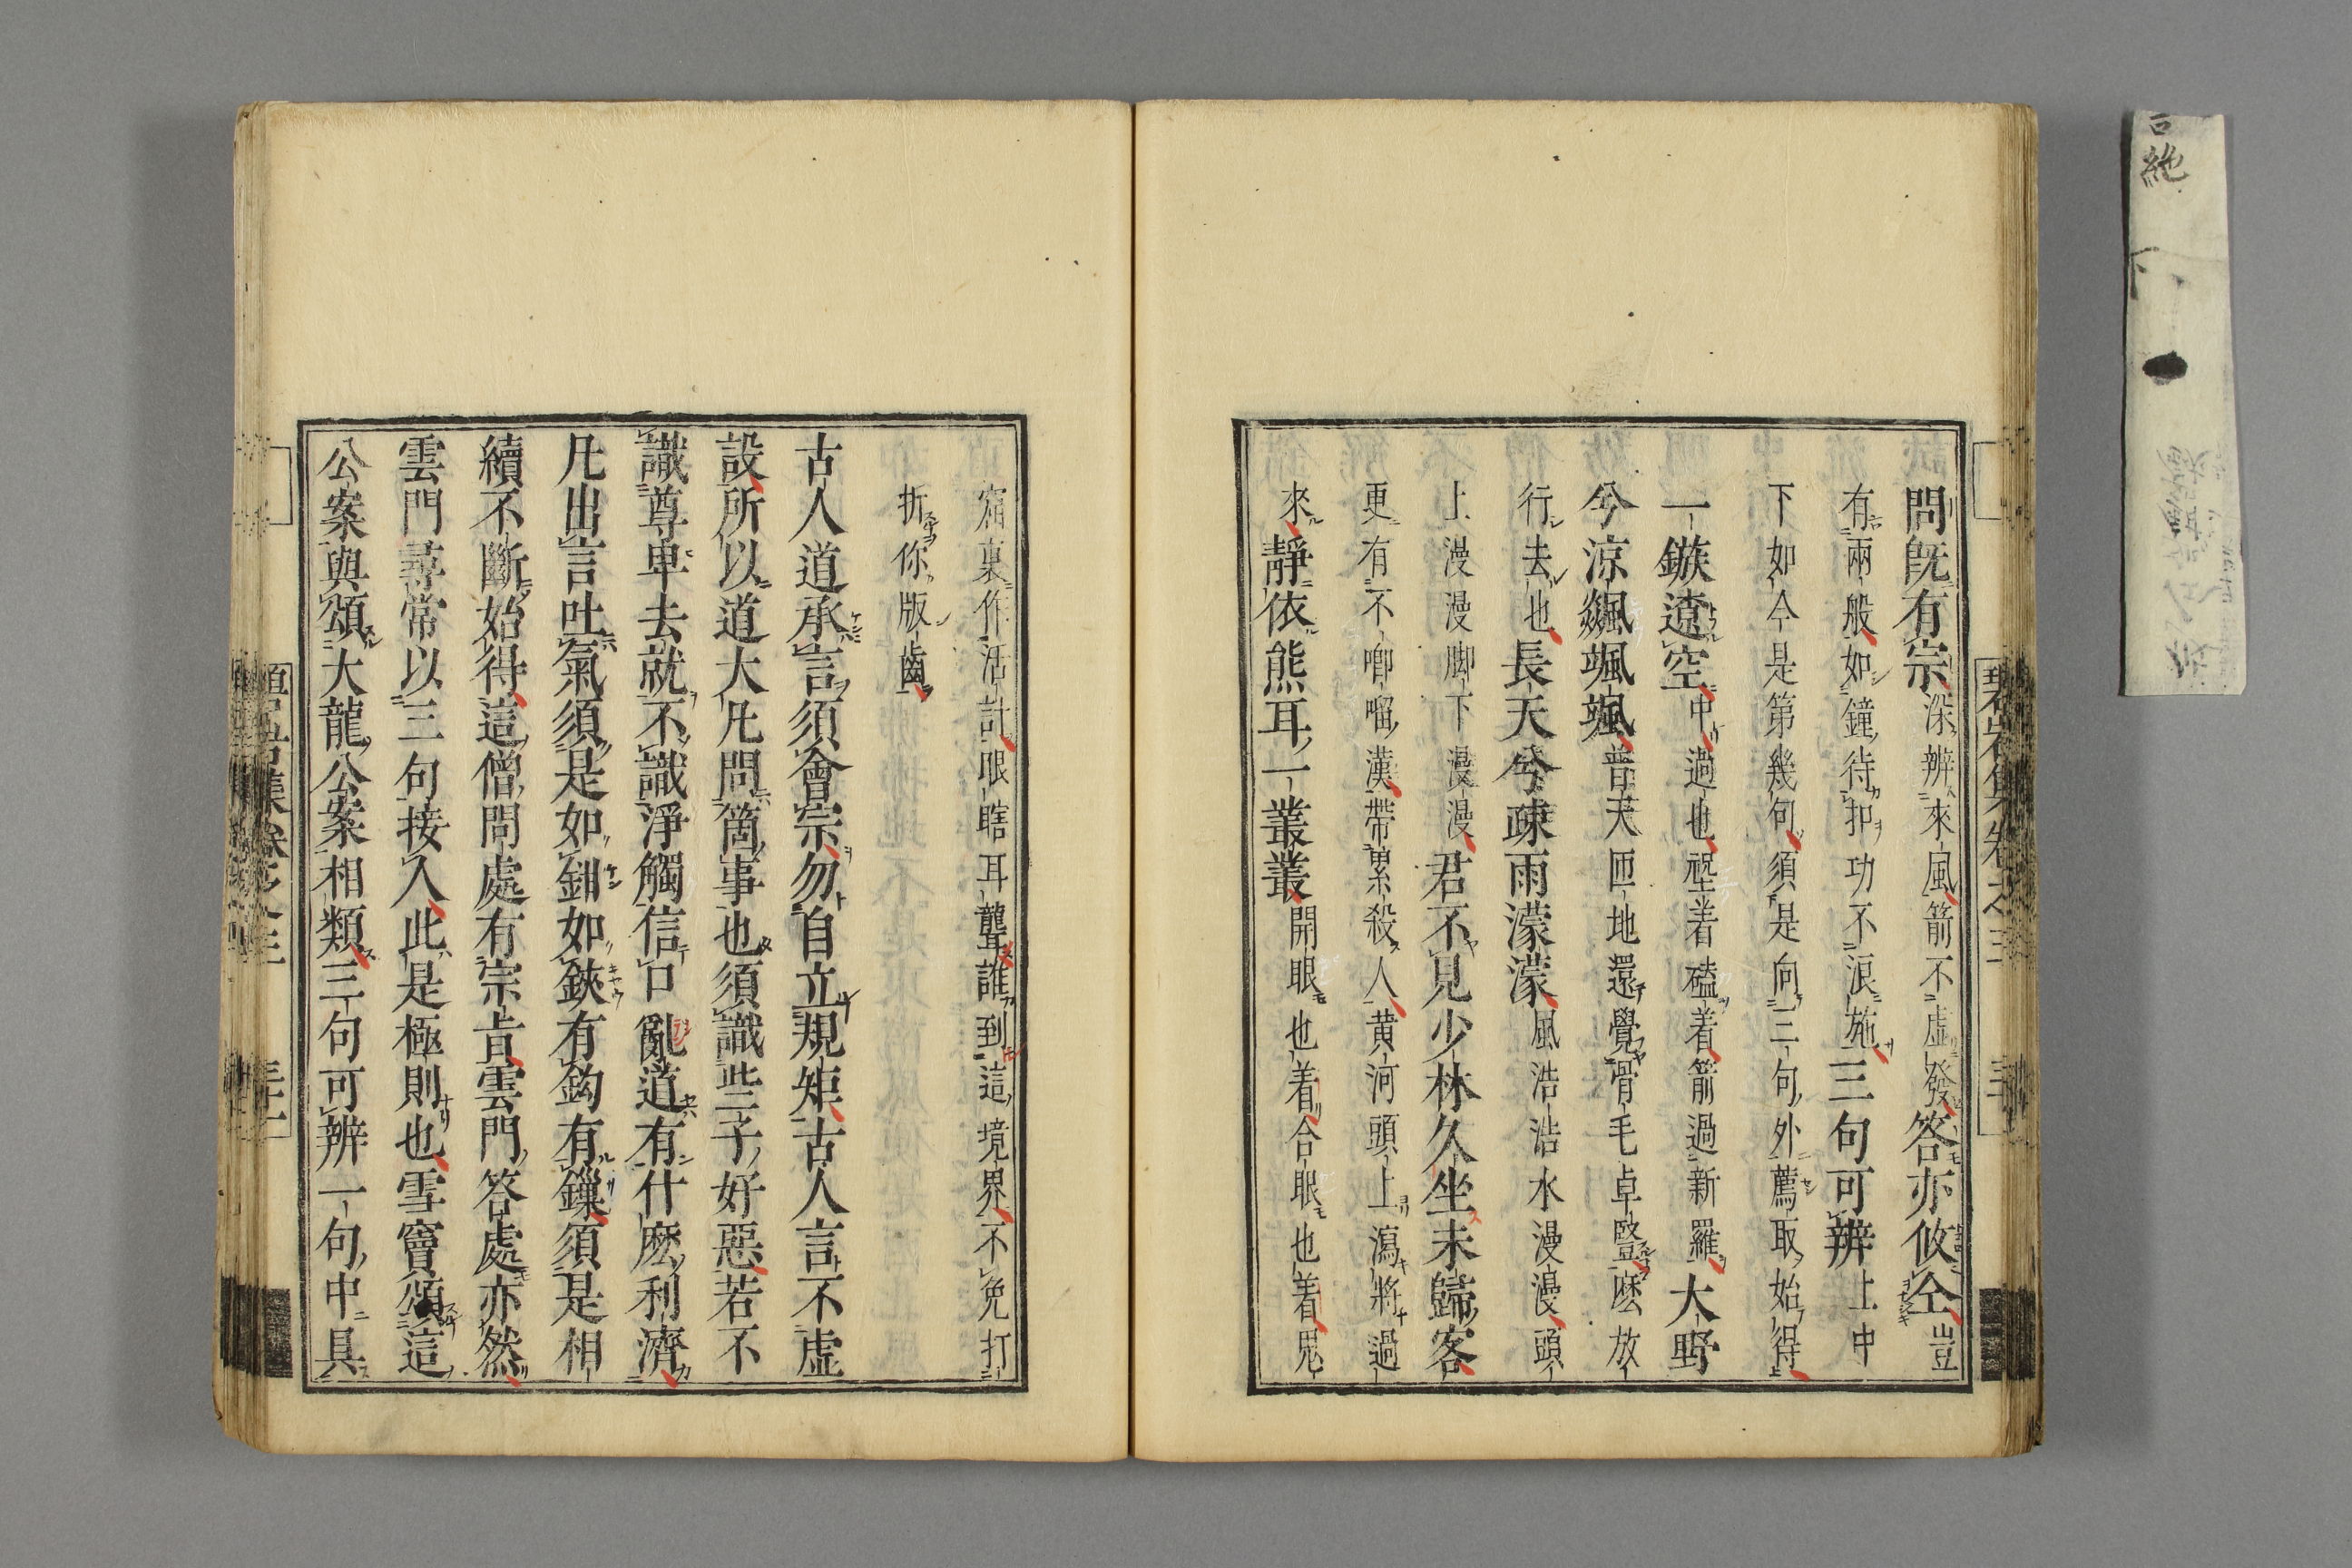 問既有宗深辨來風箭不虛發答亦攸仝豈
有兩般如鐘待扣功不浪施三句可辨上中
下如今是第幾句須是向三句外薦取始得
一鏃遼空中過也堅着磕着箭過新羅大野
兮凉飇颯颯普天匝地還覺骨毛卓竪麽放
行去也長天兮疎雨濛濛風浩浩水漫漫頭
上漫漫脚下漫漫君不見少林久坐未歸客
更有不喞𠺕漢帶累殺人黃河頭上瀉將過
來靜依熊耳一叢叢開眼也着合眼也着鬼
窟裏作活計眼瞎耳聾誰到這境界不免打
折你版齒
古人道承言須會宗勿自立規矩古人言不虛
設所以道大凡問箇事也須識些子好惡若不
識尊卑去就不識淨觸信口亂道有什麽利濟
凡出言吐氣須是如鉗如鋏有鈎有鏁須是相
續不斷始得這僧問處有宗旨雲門答處亦然
雲門尋常以三句接人此是極則也雪竇頌這
公案與頌大龍公案相類三句可辨一句中具
碧岩集卷之三
絶